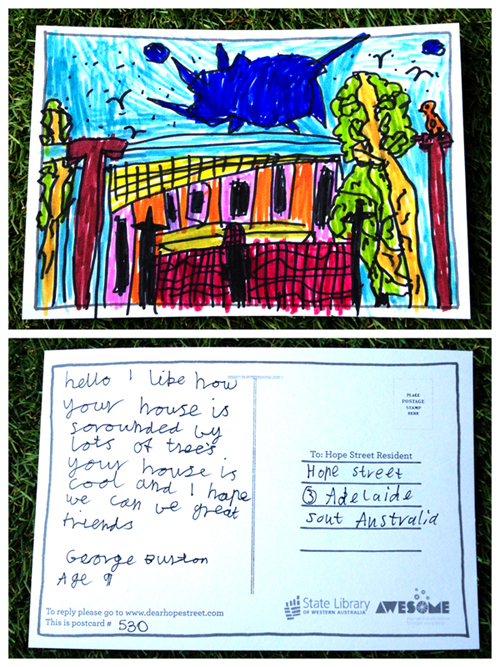 hello I like how
your house is
sorounded by
lots of trees
your house is
cool and I hope
we can be great
friends
George Burton
Age 9
To reply please go to www.dearhopestreet.com
This is postcard # 530
PLACE
POSTAGE
STAMP
HERE
To: Hope Street Resident
Hope street
Adelaide
sout Australia
State Library
OF WESTERN AUSTRALIA
AWESOME